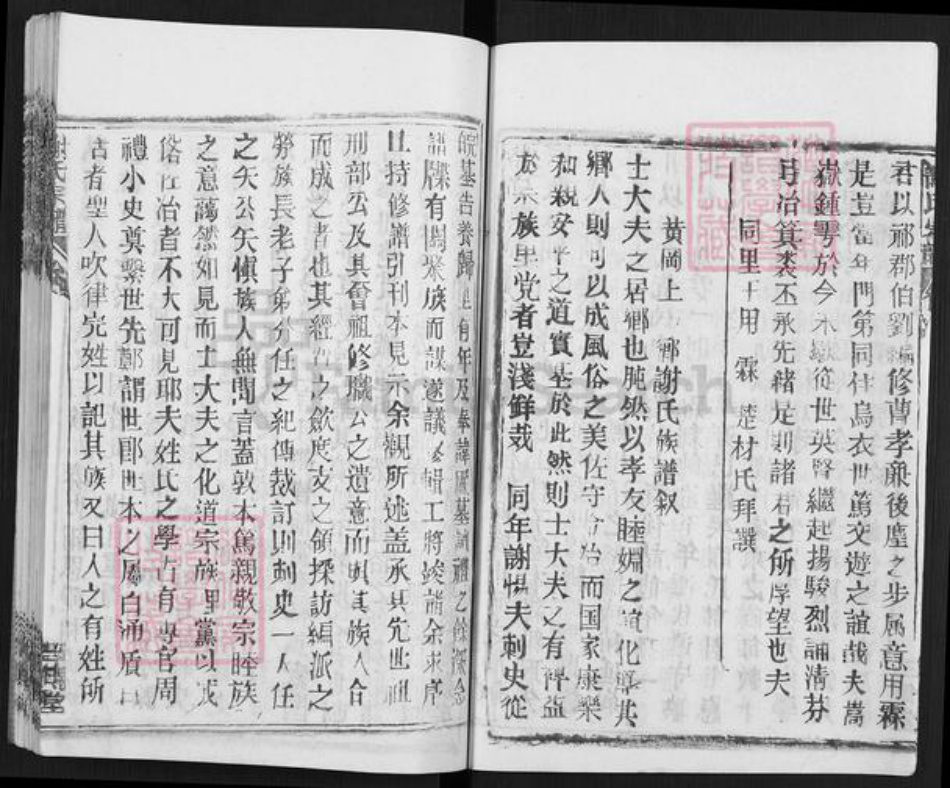 君以邠郡伯劉編修曹孝廉後塵之步属意用霖
是豈當年門第同仕烏衣世篤交遊之誼哉夫嵩
嶽鍾靈於今未歇從世英賢繼起揚駿烈誦清芬
弓冶箕裘丕承先緒是則諸君之所厚望也夫
同里 用霖 楚材氏拜譔
黃岡上鄉謝氏族譜叙
士大夫之居鄉也肫然以孝友睦婣之誼化導其
鄉人則可以成風俗之美佐守令治而国家康樂
和親安平之道實基於此然則士大夫之有俾益
於宗族里党者豈淺鮮哉 同年謝惕夫刺史從
皖基告養歸 有年及奉諱廬墓 禮之餘深念
譜牒有關宗族而謀遂議 輯工將竣誦余求序
且持修譜引刊本見示余觀所述盖承其先世祖
刑部公及其曾祖修職公之遺意而與其族人合
而成之者也其經 之歛度支之領採訪編派之
勞族長老子弟分任之紀傳裁訂則刺史一人任
之矢公矢愼族人無間言蓋敦本篤親敬宗睦族
之意藹然如見而士大夫之化道宗族里黨以成
俗 冶者不大可見耶夫姓氏之學古有專官周
禮小史奠繫世先鄭謂世即世本之屬白通
古者聖人吹律定姓以記其族又曰人之有姓所
謝氏宗譜